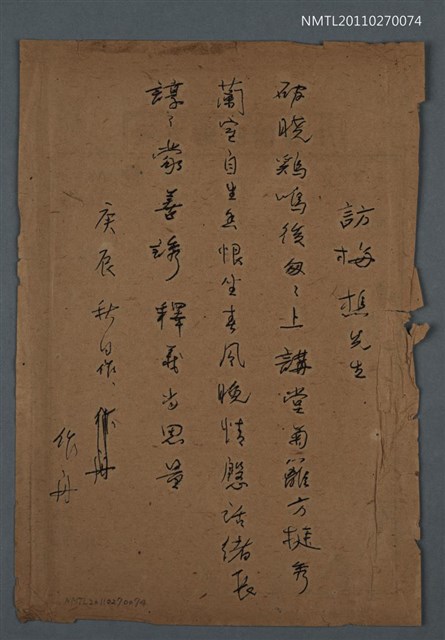 NMTL20110270074
訪梅樵先生
破曉鷄鳴後匆々上講堂菊籬方挺秀
蘭室自生香恨坐春風晚情慇話緒長
諄々蒙善誘釋義当思量
庚辰秋日作、
作舟
NMTL20110270074